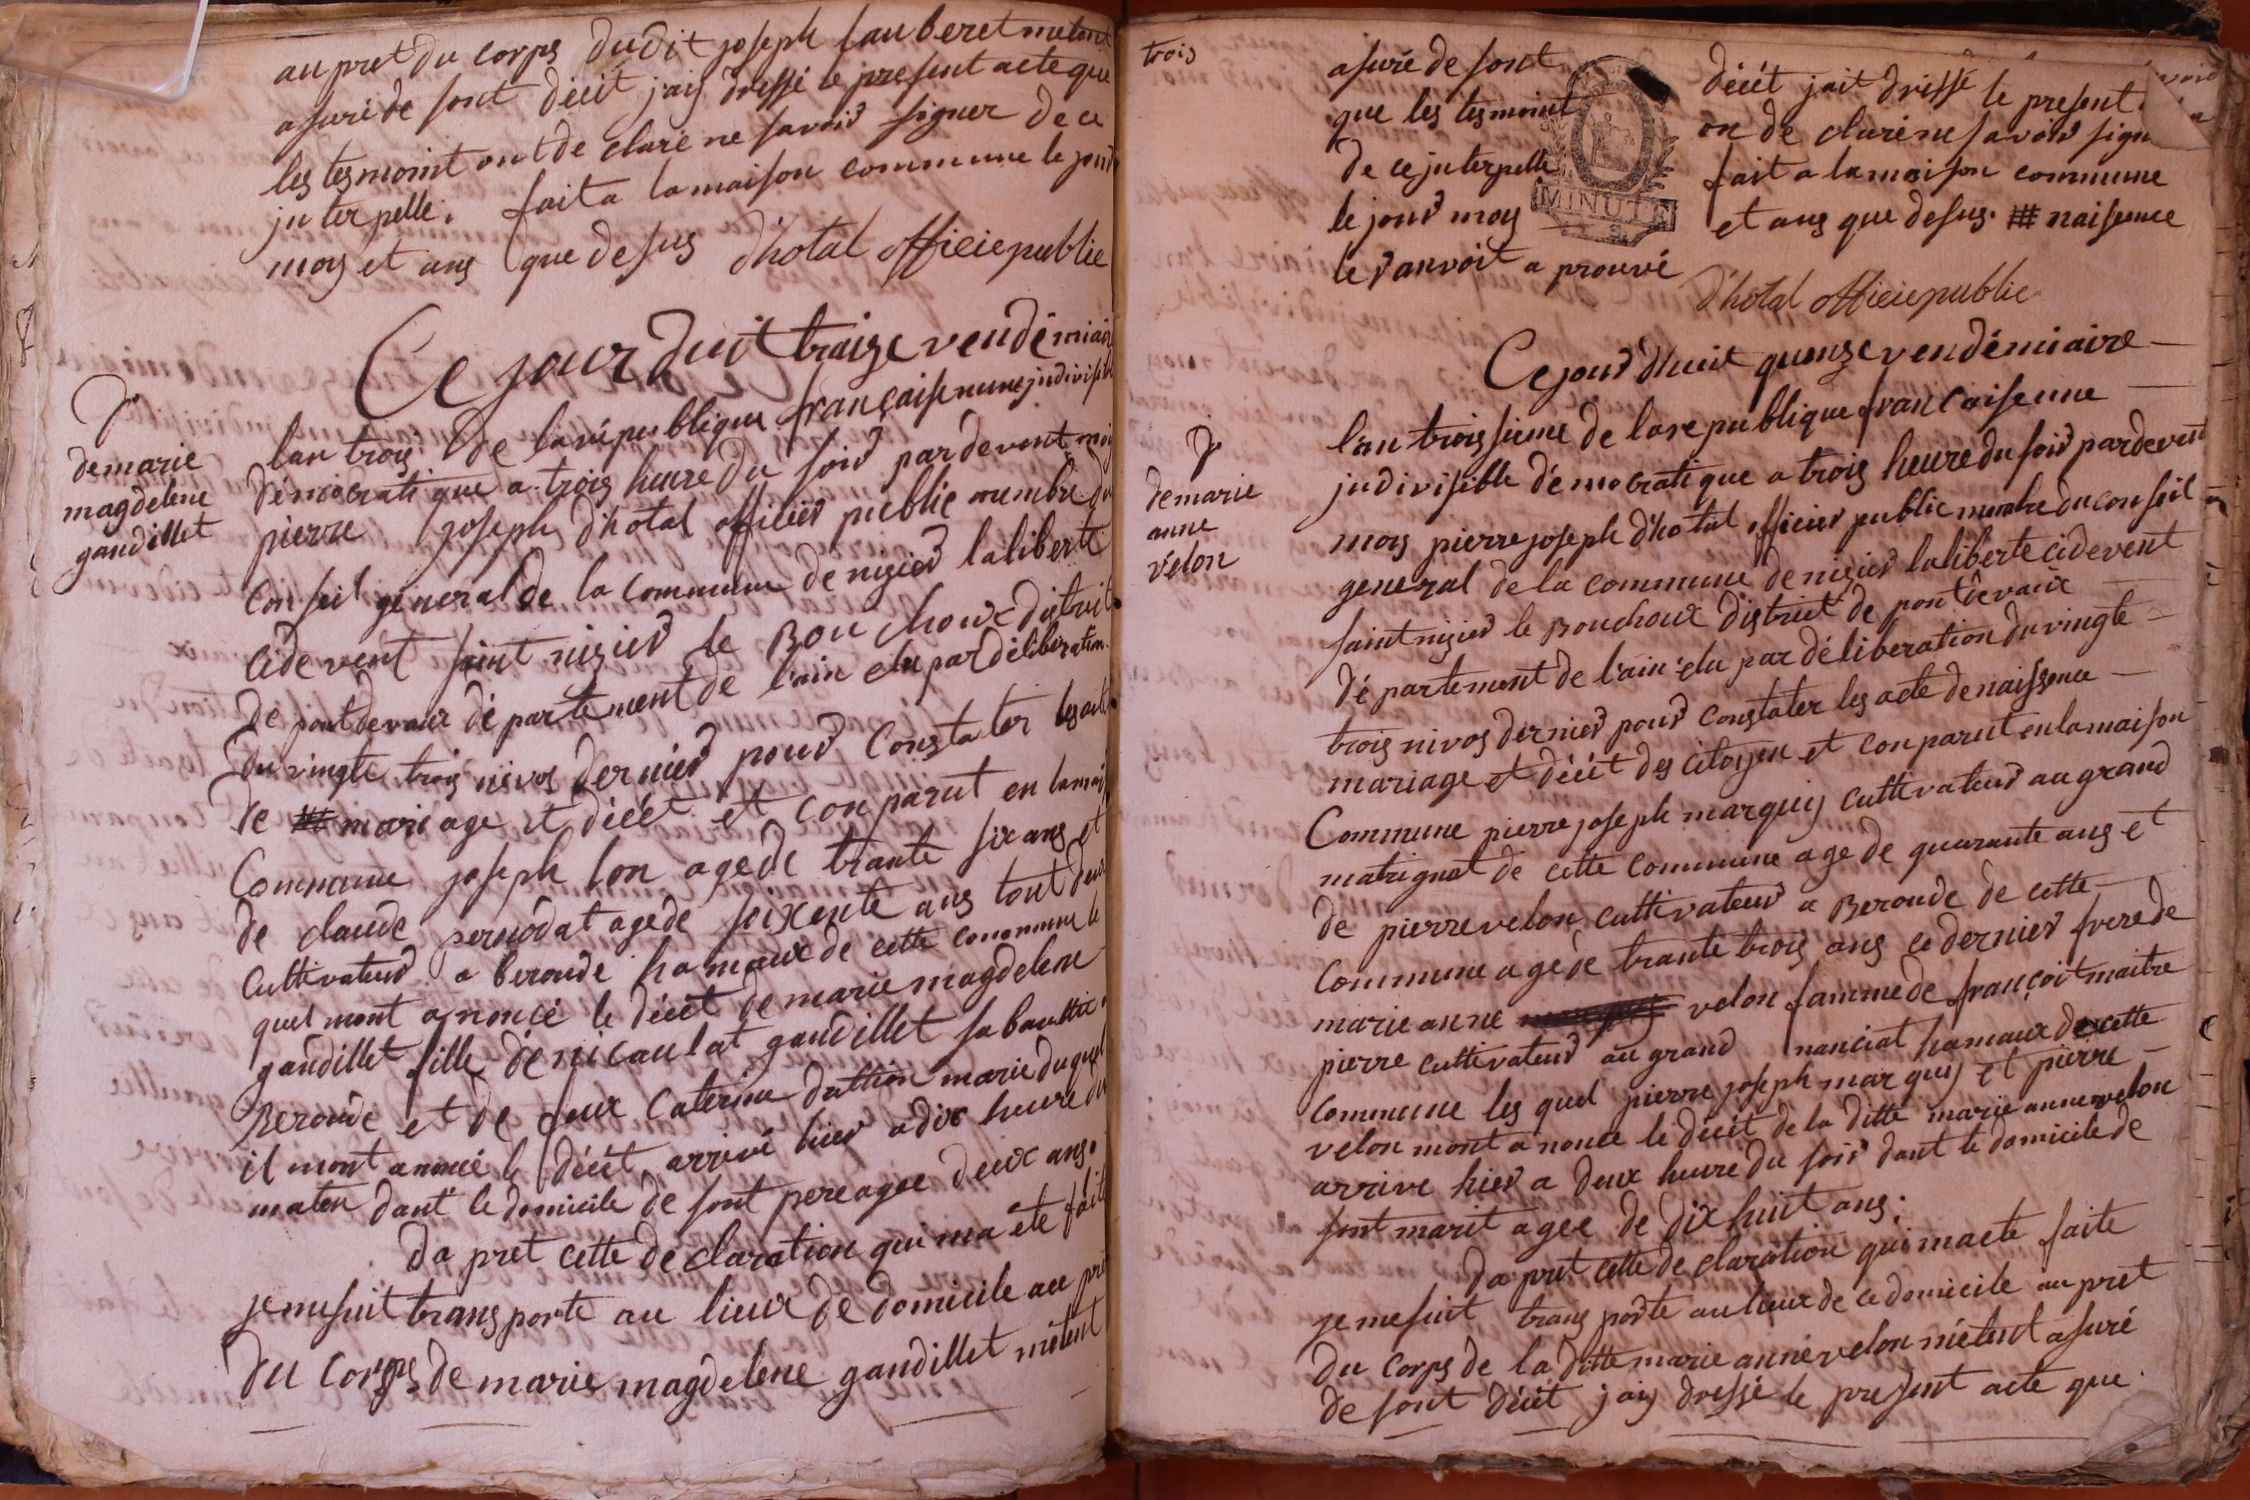 au pret du corps dudit joseph fauberet metent
asuré de sont décét jais dressé le present acte que
les tesmoint ont de claré ne savoir signer de ce
juterpelle. fait a la maison commune le jour
mois et ans que desus d'hotal officie public
Ce jour duit traize vendémiair
lan trois de la république française une jndivisible
démocratique a trois heure du soir par devent moi
pierre joseph d'hotal officier public membre du
Conseil general de la commune de nizier laliberté
cidevent saint nizier le Bouchoux district
de pontdevaux département de l'ain elu par délibération
du vingte trois nivos dernier pour Constater les acte
de mariage et décét et conparut en la mais
Commune joseph lon age de trante six ans et
de claude pernodat age de soixente ans tout deux
Cultivateur a beronde hamaux de cette commune le
quel mont anoncé le décét de marie magdelene
gaudillet fille de nicaulat gaudillet
Beronde et de caterine duttion marie duquel
il mont anoncé le décét arrivé hier a dix heure du
maten dant le domicile de sont pere agee deux ans.
da pret cette déclaration qui ma été faite
je me suit transporté au lieux de domicile au pret
du Corps de marie magdelene gaudillet metent
de marie
magdelene
gaudillet
trois
asuré de sont décét jait dressé le present
que les tesmoint on de claré ne savoir sign
de ce juterpelle fait a la maison commune
MINUTE
le jour moy et ans que desus. naisence
le ranvoit a prouvé
d'hotal officie public
Ce jour d'huit quenze vendémiaire
l'an troissieme de la republique francaise une
jndivisible démocratique a trois heure du soir par devent
moy pierre joseph d'hotal officier public membre du conseil
general de la commune de nizier laliberte cidevent
saint nizier le Bouchoux district de pont devaux
département de l'ain elu par délibération du vingte
trois nivos dernier pour Constater les acte de naissence
mariage et décét des citoyen et conparut en la maison
Commune pierre joseph marquis cultivateur au grand
matrignat de cette commune age de quarante ans et
de pierre velon cultivateur a Beronde de cette
Commune age de trante trois ans ce dernier frere de
marie anne velon famme de françoit maitre
pierre cultivateur au grand nanciat hamaux de cette
commune les quel pierre joseph marquis et pierre
velon mont anoncé le décét de la ditte marie anne velon
arrive hier a deux heure du soir dant le domicile de
sont marit agee de dix huit ans;
da pret cette declaration qui ma ete faite
je me suit trans porté au lieux de ce domicile au pret
du corps de la ditte marie anne velon métent asuré
de sont décét jais dressé le present acte que
de marie
anne
vélon